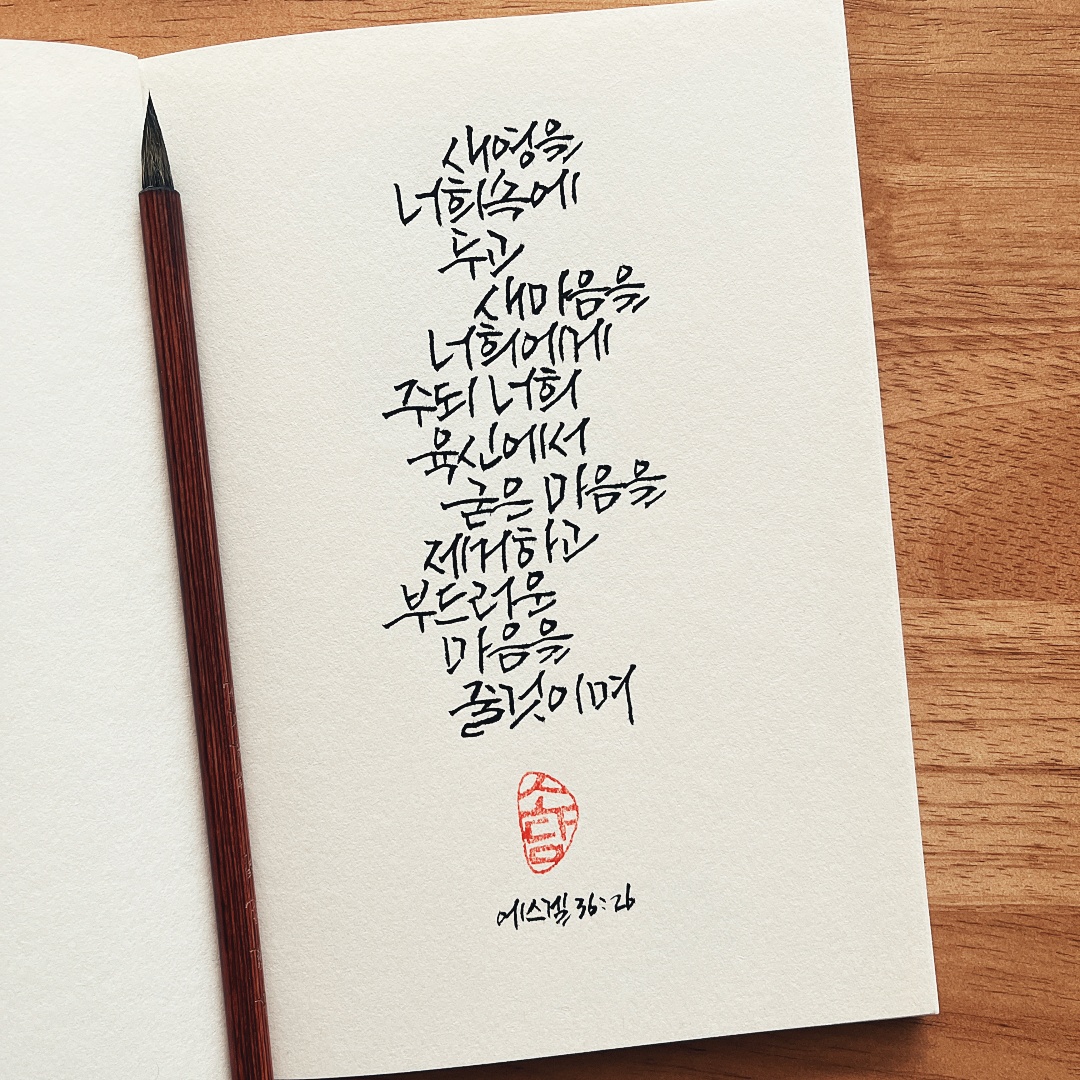 새영을
너희속에
두고
새마음을
너희에게
주되 너희
육신에서
굳은 마음을
제거하고
부드러운
마음을
줄것이며
에스겔 36:26